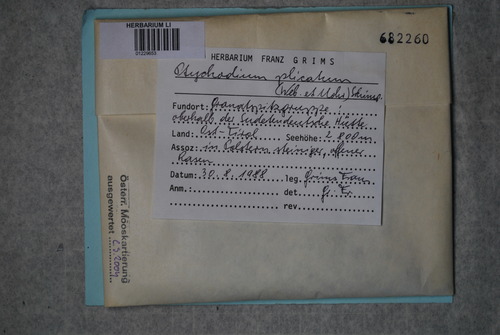 HERBARIUM LI
01229653
682260
HERBARIUM FRANZ GRIMS
Ptychodium plicatum
(Web. et Mohr) Schimp.
Fundort: Granatspitzgruppe:
oberhalb der Sudetendeutsche Hütte
Land: Ost-Tirol Seehöhe: 2 800m
Assoz: in Polstern steiniger, offener
Rasen
Datum: 30.8.1988 leg. Grims Franz
Anm. det. G. Fr.
rev.
Österr. Mooskartierung
ausgewertet